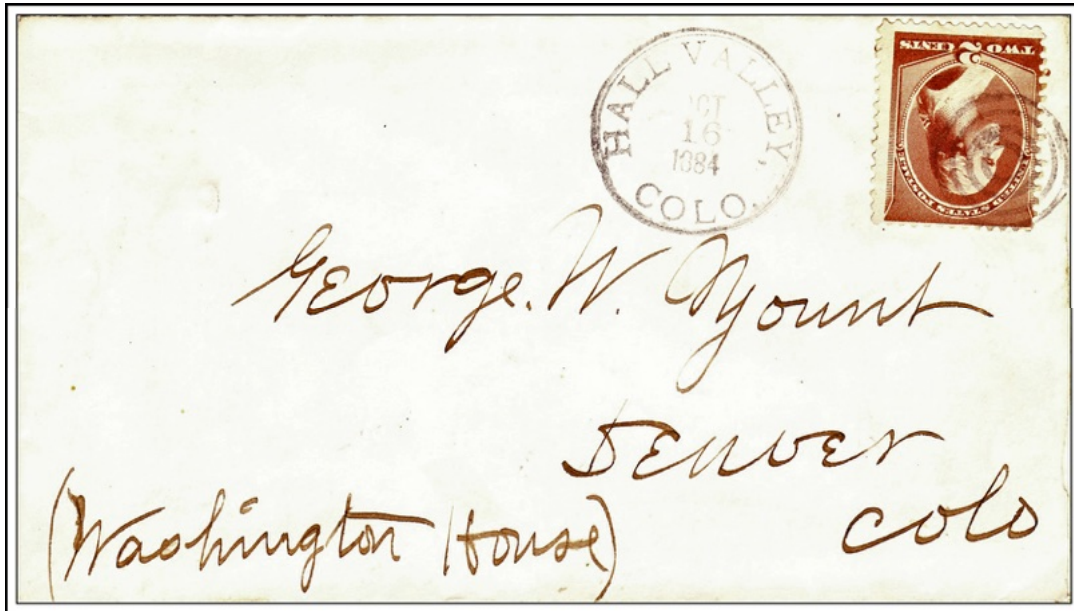 HALL VALLEY,
OCT
16
1884
COLO.
TWO 2 CENTS
UNITED STATES POSTAGE
George. W. Yount
Denver
Colo
(Washington House)